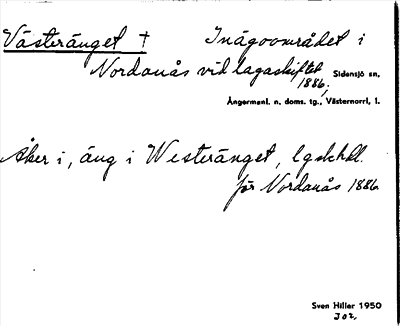 Västeränget † Inägoområdet i
Nordanås vid lagaskiftet Sidensjö sn,
1886.
Ångermanl. n. doms. tg., Västernorrl. l.
Åker i, äng i Westeränget, lgskhdl.
för Nordanås 1886
Sven Hiller 1950